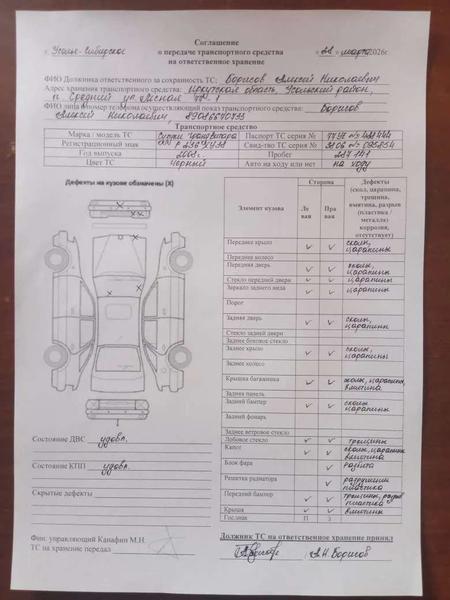 Соглашение
о передаче транспортного средства
на ответственное хранение
г. Усолье-Сибирское «22» марта 2026г.
ФИО Должника ответственного за сохранность ТС: Борисов Алексей Николаевич
Адрес хранения транспортного средства: Иркутская область, Усольский район,
п. Средний ул. Лесная
ФИО лица и номер телефона осуществляющий показ транспортного средства: Борисов
Алексей Николаевич,
Транспортное средство
Марка / модель ТС Сузуки Паспорт ТС серия №
Регистрационный знак Свид-тво ТС серия №
Год выпуска Пробег
Цвет ТС Черный Авто на ходу или нет на ходу
Дефекты на кузове обозначены (X)
Элемент кузова Сторона Дефекты
Ле вая Пра вая (скол, царапина, трещина, вмятина, разрыв (пластика / металла) коррозия, отсутствует)
Переднее крыло ✓ ✓ сколы, царапины
Переднее колесо
Передняя дверь ✓ ✓ сколы, царапины
Стекло передней двери ✓ ✓ царапины
Зеркало заднего вида ✓ ✓ царапины
Порог
Задняя дверь ✓ ✓ сколы, царапины
Стекло задней двери
Заднее боковое стекло
Заднее крыло ✓ ✓ сколы, царапины
Заднее колесо
Крышка багажника ✓ ✓ сколы, царапины, вмятина
Задняя панель
Задний бампер ✓ ✓ сколы, царапины
Задний фонарь
Заднее ветровое стекло
Лобовое стекло ✓ ✓ трещины
Капот ✓ ✓ сколы, царапины, вмятина
Блок фара ✓ разбита
Решетка радиатора ✓ разрушения пластика
Передний бампер ✓ ✓ трещины, пластика
Крыша ✓ ✓ вмятины
Гос.знак П З
Состояние ДВС удовл.
Состояние КПП удовл.
Скрытые дефекты
Фин. управляющий Канафин М.Н.
ТС на хранение передал
Должник ТС на ответственное хранение принял
А.Н. Борисов